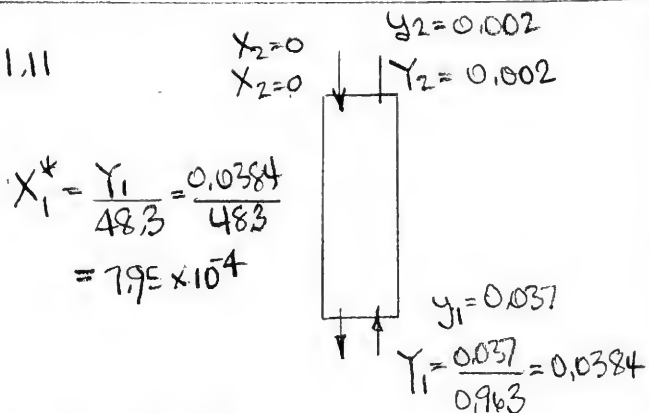 1.11
X₂=0
y₂=0.002
X₂=0
Y₂= 0.002
X₁* = Y₁/48.3 = 0.0384/483
= 7.95 x 10⁻⁴
y₁= 0.037
Y₁= 0.037/0.963 = 0.0384